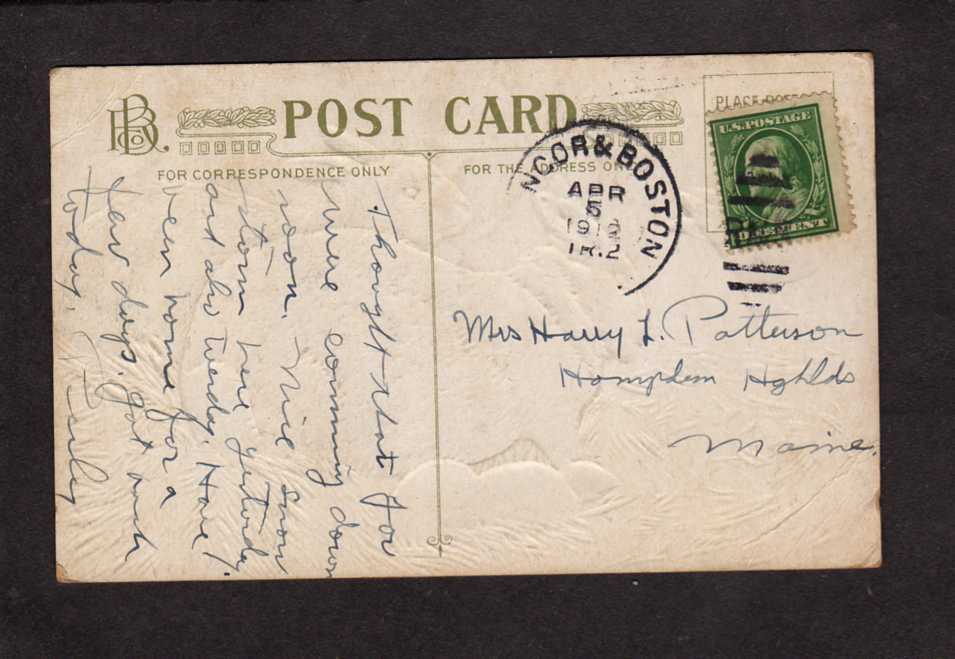 BB Co.
POST CARD
FOR CORRESPONDENCE ONLY
FOR THE ADDRESS ONLY
U.S. POSTAGE
NGOR & BOSTON
APR
5
TR.2
Mrs Harry L. Patterson
Hampden Hghlds
Maine.
Thought that you
were comming down
soon. Nice snow
storm here yesterday
and also Tuesday. Have
been home for a
few days. got
today.